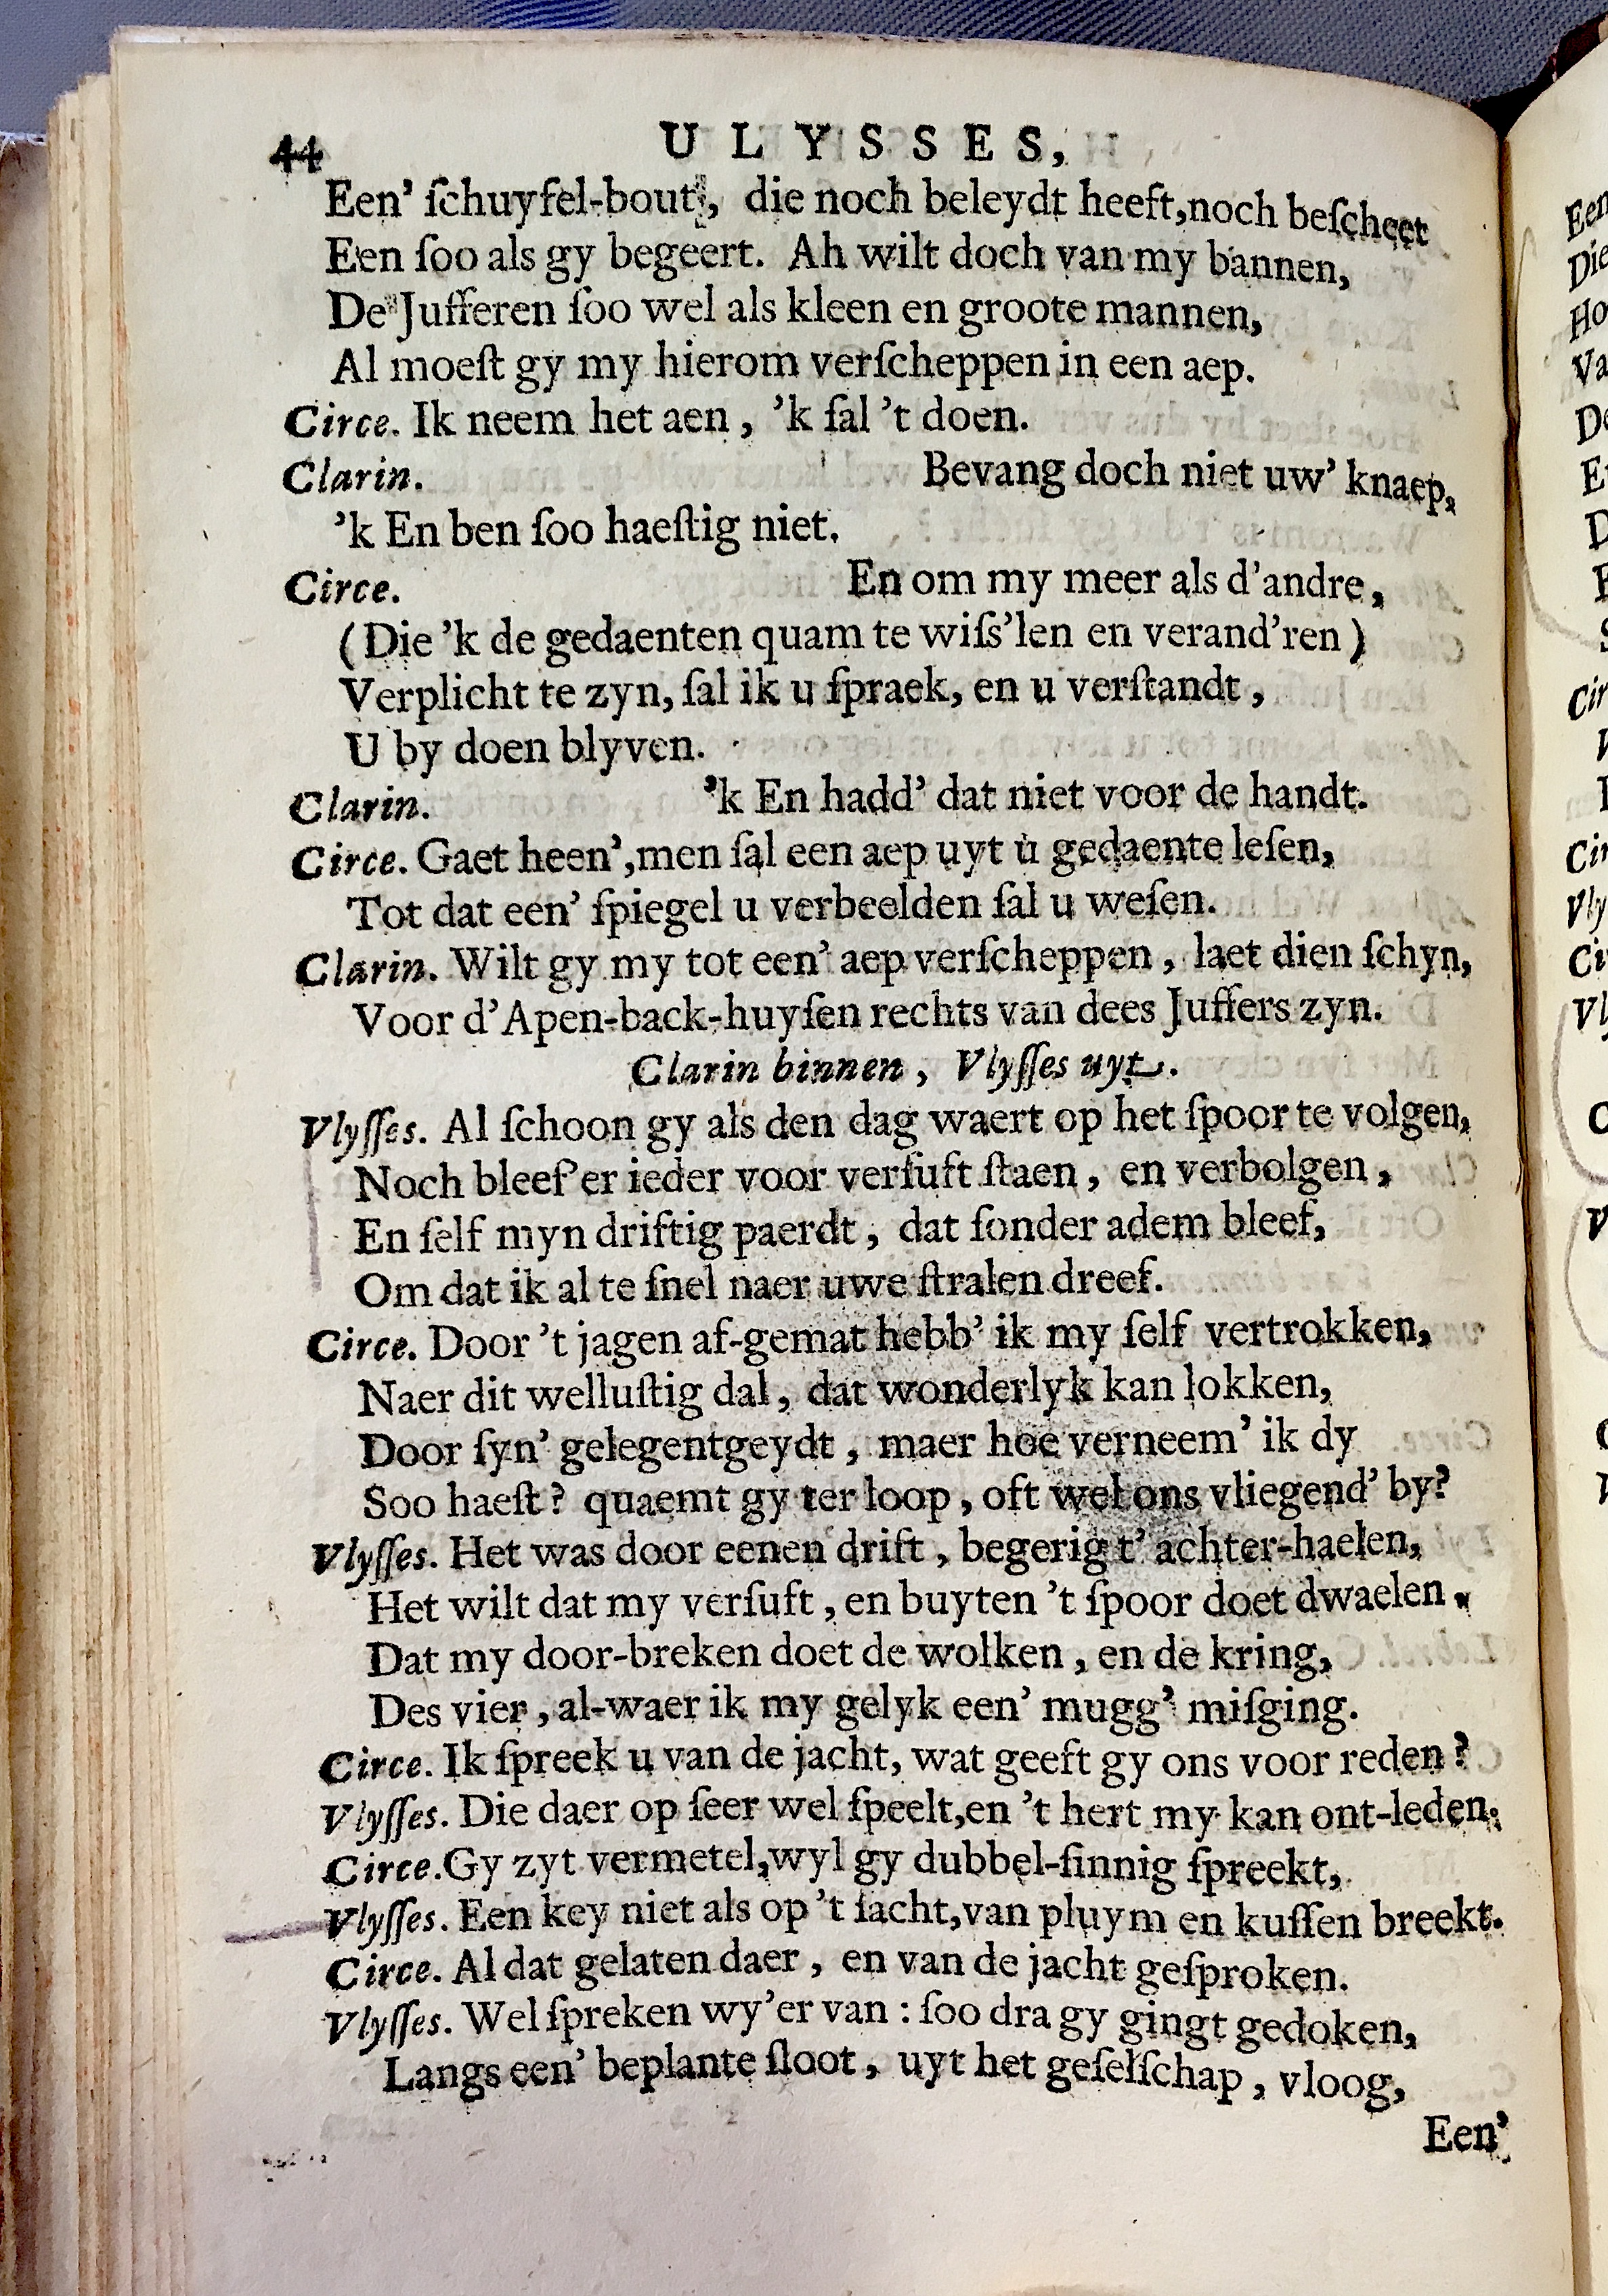 44 ULYSSES,
Een' ſchuyfel-bout, die noch beleydt heeft, noch beſcheet
Een ſoo als gy begeert. Ah wilt doch van my bannen,
De Jufferen ſoo wel als kleen en groote mannen,
Al moeſt gy my hierom verſcheppen in een aep.
Circe. Ik neem het aen, 'k ſal 't doen.
Clarin. Bevang doch niet uw' knaep,
'k En ben ſoo haeſtig niet.
Circe. En om my meer als d'andre,
(Die 'k de gedaenten quam te wiſs'len en verand'ren)
Verplicht te zyn, ſal ik u ſpraek, en u verſtandt,
U by doen blyven.
Clarin. 'k En hadd' dat niet voor de handt.
Circe. Gaet heen', men ſal een aep uyt u gedaente leſen,
Tot dat een' ſpiegel u verbeelden ſal u weſen.
Clarin. Wilt gy my tot een' aep verſcheppen, laet dien ſchyn,
Voor d'Apen-back-huyſen rechts van dees Juffers zyn.
Clarin binnen, Vlyſſes uyt.
Vlyſſes. Al ſchoon gy als den dag waert op het ſpoor te volgen,
Noch bleef'er ieder voor verſuft ſtaen, en verbolgen,
En ſelf myn driftig paerdt, dat ſonder adem bleef,
Om dat ik al te ſnel naer uwe ſtralen dreef.
Circe. Door 't jagen af-gemat hebb' ik my ſelf vertrokken,
Naer dit welluſtig dal, dat wonderlyk kan lokken,
Door ſyn' gelegentgeydt, maer hoe verneem' ik dy
Soo haeſt? quaemt gy ter loop, oft wel ons vliegend' by?
Vlyſſes. Het was door eenen drift, begerig t' achter-haelen,
Het wilt dat my verſuft, en buyten 't ſpoor doet dwaelen,
Dat my door-breken doet de wolken, en de kring,
Des vier, al-waer ik my gelyk een' mugg' miſging.
Circe. Ik ſpreek u van de jacht, wat geeft gy ons voor reden?
Vlyſſes. Die daer op ſeer wel ſpeelt, en 't hert my kan ont-leden;
Circe. Gy zyt vermetel, wyl gy dubbel-ſinnig ſpreekt,
Vlyſſes. Een key niet als op 't ſacht, van pluym en kuſſen breekt.
Circe. Al dat gelaten daer, en van de jacht geſproken.
Vlyſſes. Wel ſpreken wy'er van: ſoo dra gy gingt gedoken,
Langs een' beplante ſloot, uyt het geſelſchap, vloog,
Een'